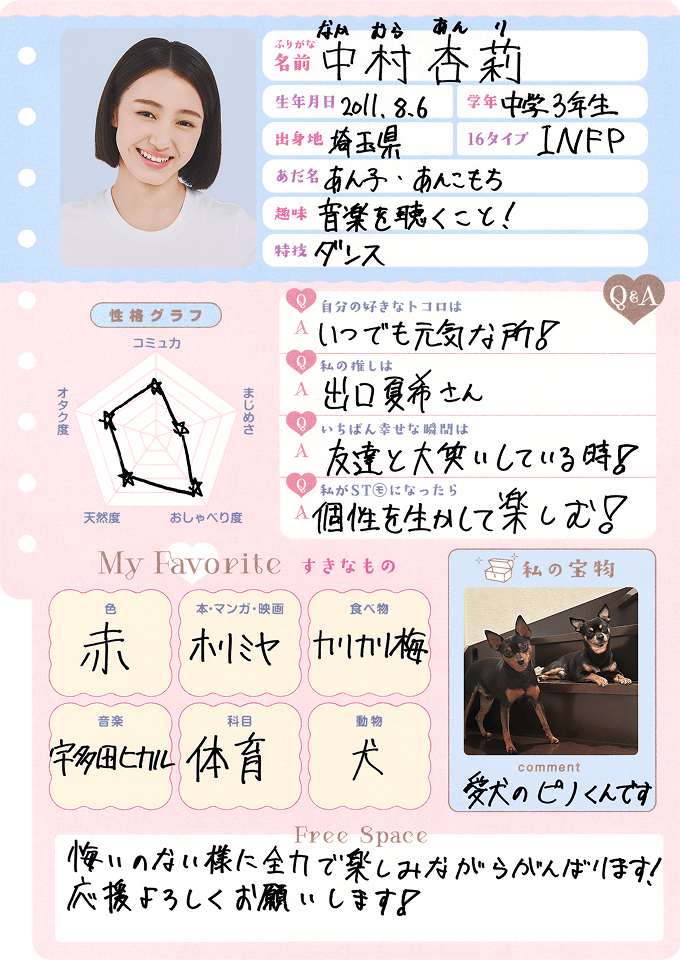 なかむらあんり
ふりがな
名前 中村 杏莉
生年月日 2011.8.6 学年 中学3年生
出身地 埼玉県 16タイプ INFP
あだ名 あん子・あんこもち
趣味 音楽を聴くこと!
特技 ダンス
Q&A
性格グラフ
コミュ力
まじめさ
おしゃべり度
天然度
オタク度
Q 自分の好きなトコロは
A いつでも元気な所!
Q 私の推しは
A 出口夏希さん
Q いちばん幸せな瞬間は
A 友達と大笑いしている時!
Q 私がSTモになったら
A 個性を生かして楽しむ!
My Favorite すきなもの
色
赤
本・マンガ・映画
ホリミヤ
食べ物
カリカリ梅
音楽
宇多田ヒカル
科目
体育
動物
犬
私の宝物
comment
愛犬のピノくんです
Free Space
悔いのない様に全力で楽しみながらがんばります!
応援よろしくお願いします!